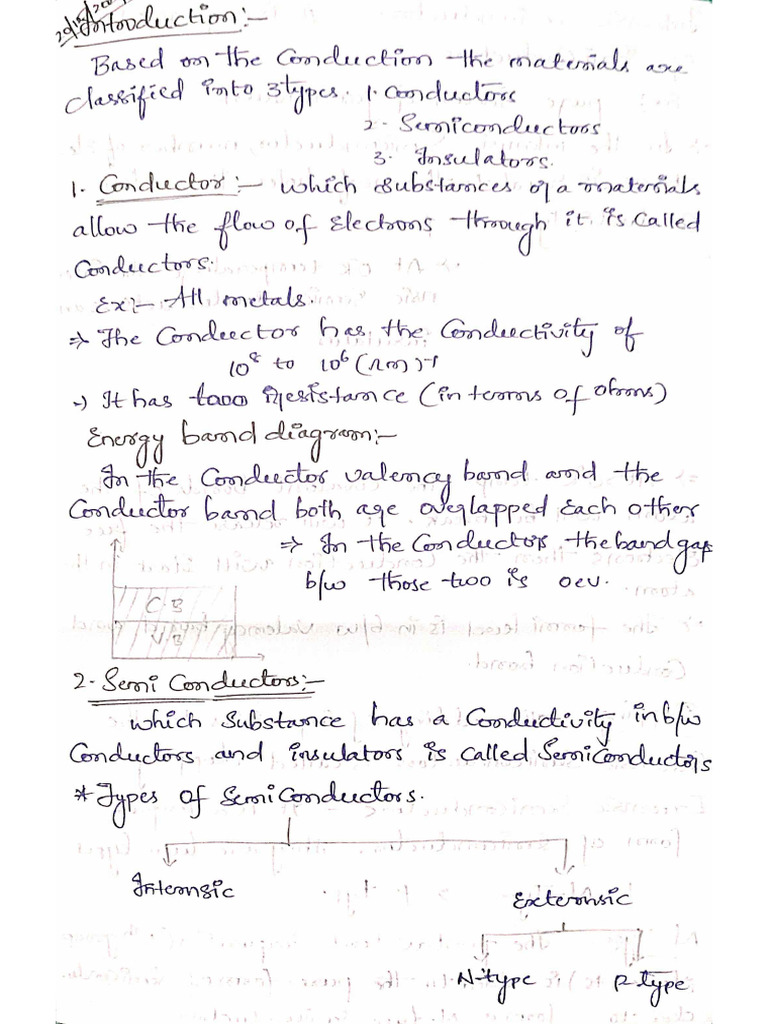 Introduction:-
Based on the Conduction the materials are
classified into 3types. 1. Conductors
2. Semiconductors
3. Insulators.
1. Conductor:- which substances of a materials
allow the flow of Electrons through it is called
Conductors.
Ex:- All metals.
⇒ The Conductor has the Conductivity of
10⁸ to 10⁶ (Ωm)⁻¹
→ It has two Resistance (in terms of ohms)
Energy band diagram:-
In the Conductor valency band and the
Conductor band both are overlapped Each other
⇒ In the Conductors, the band gap
b/w those two is oev.
C.B
V.B
2. Semi Conductors:-
which Substance has a Conductivity in b/w
Conductors and insulators is called Semiconductors
* Types of SemiConductors.
Internsic
Externsic
N-type P-type